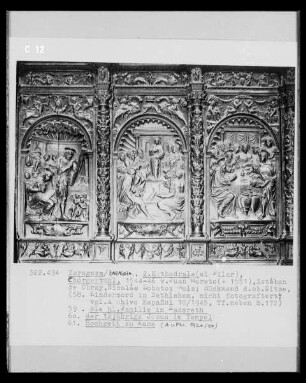 C 12
522.434 Zaragoza/ 2.Kathedrale(el Pilar),
Chorgestühl, 1544-46 v.Juan Moreto(+ 1551),Estéban
de Obray,Nicolás Lobato; Holz; Rückwand d.ob.Sitze.
(58. Kindermord in Bethlehem, nicht fotografiert;
vgl.Archivo Español 18/1945, Tf.neben S.172)
59. die hl.Familie in Nazareth
60. der 12jährige Jesus im Tempel
61. Hochzeit zu Kana